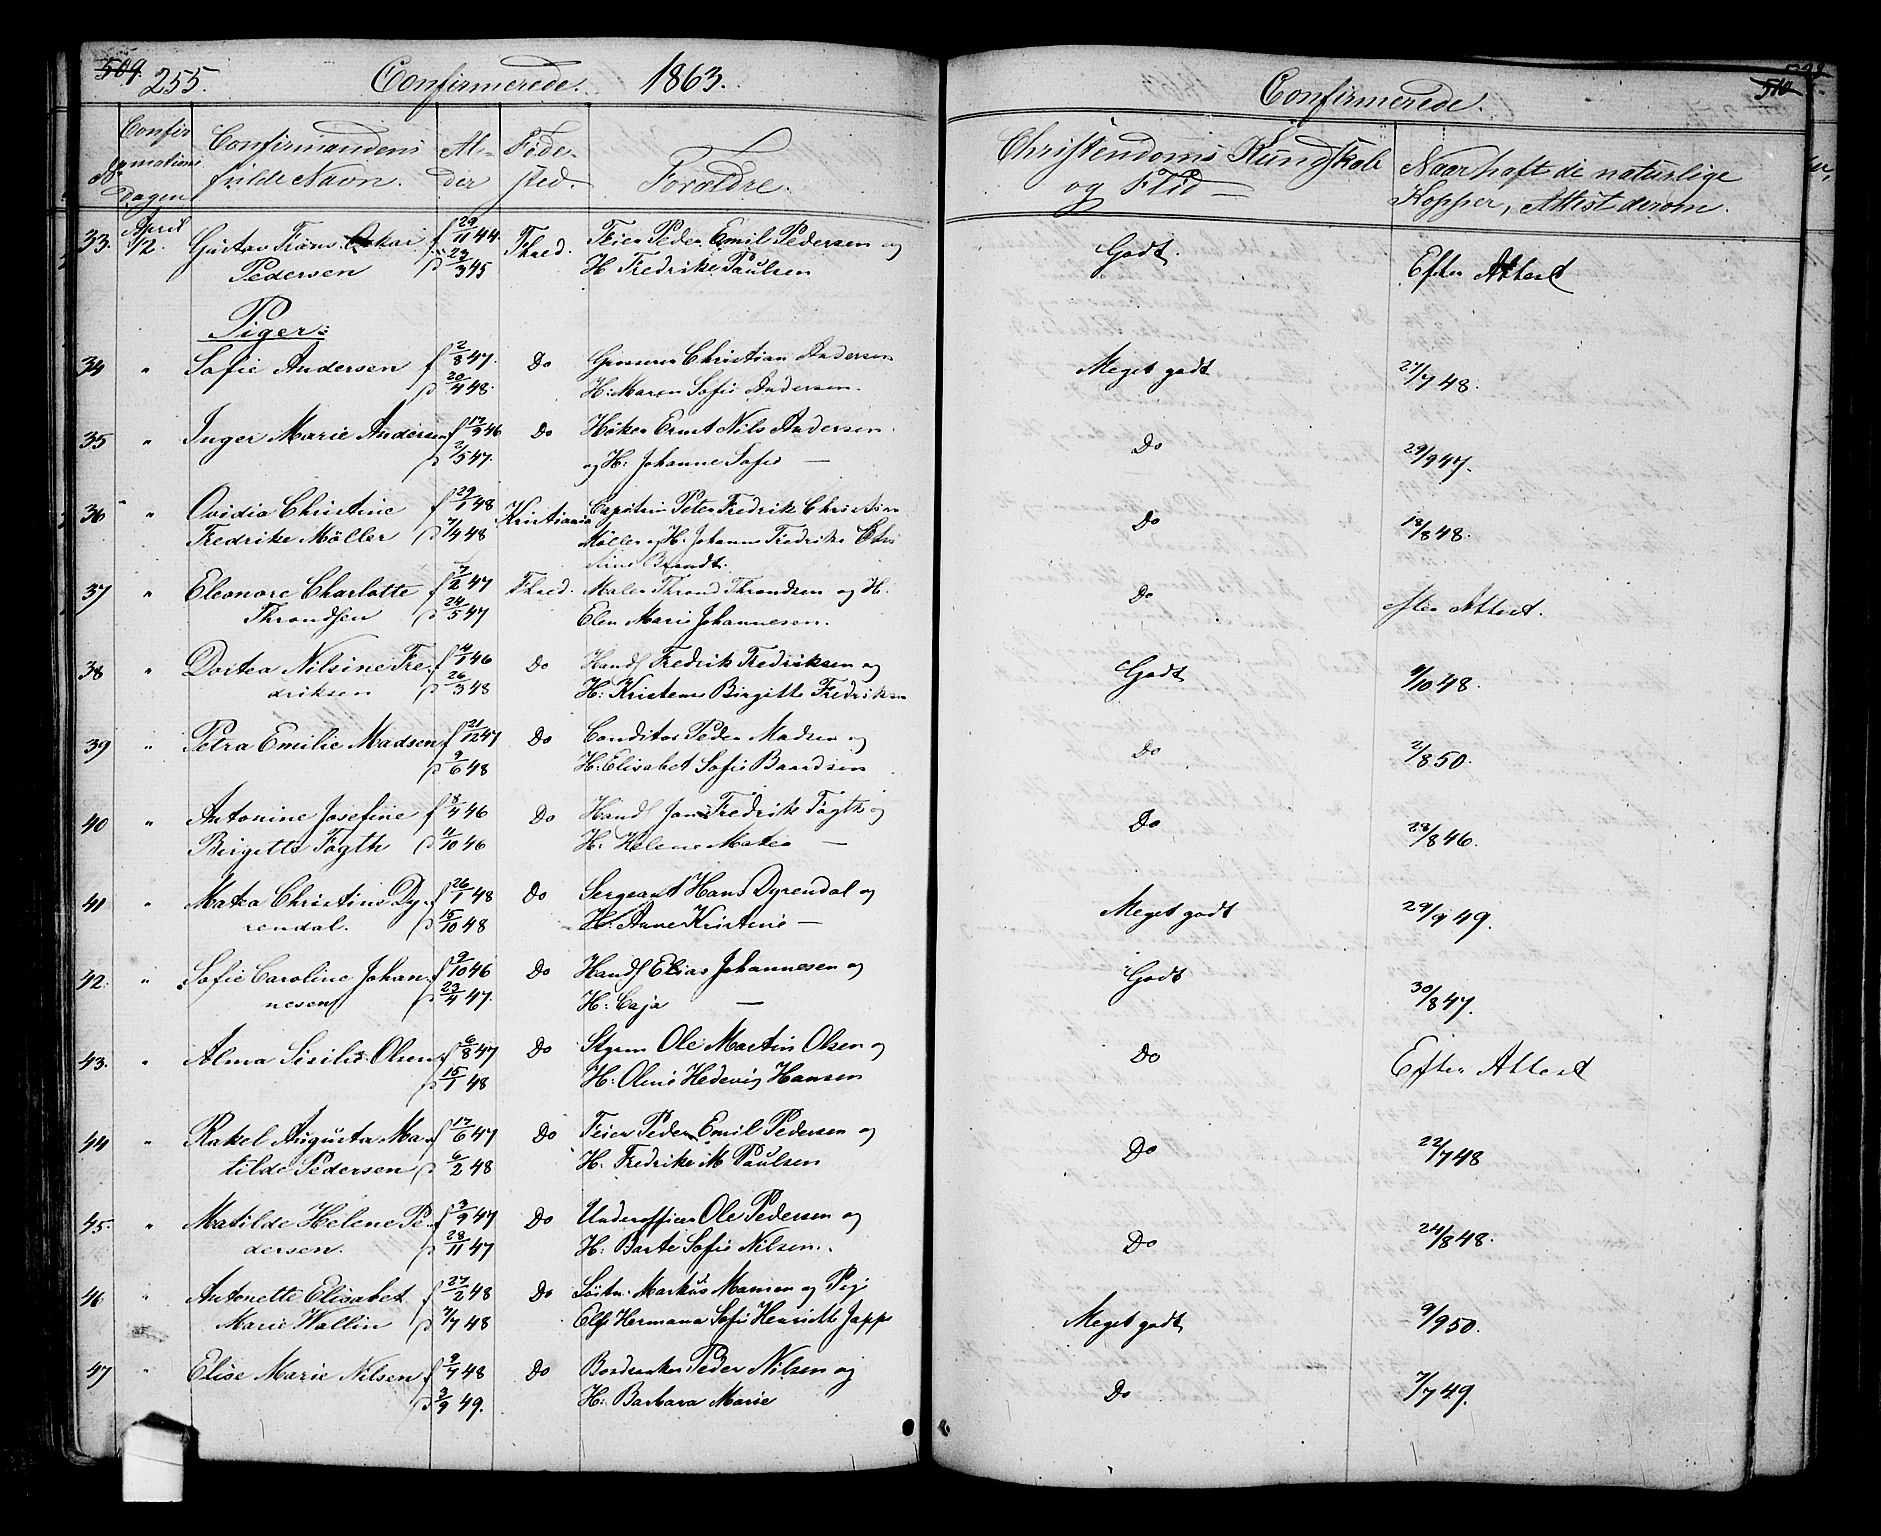 509 255. Confirmerede. 1863.
Confirmations Dagen
Confirmandens fulde Navn.
Alder
Fødested.
Forældre.
33. April 12. Gustav Frans Oskar f 29/11 44. Fhred. Feier Peder Emil Pedersen og
Pedersen d 29/3 45 H Fredrike Paulsen
Piger:
34 " Sofie Andersen f 2/8 47. Do Christian Andersen
d 20/4 48. H: Maren Sofie Andersen.
35 " Inger Marie Andersen f 17/9 46 Do Høker Ernst Nils Andersen
d 2/5 47. og H: Johanne Sofie —
36 " Ovidia Christine f 29/1 48 Kristiania Capitain Peter Fredrik Christian
Fredrike Møller d 7/4 48 Møller og H: Johanne Fredrike Chri
stine Brandt.
37 " Eleonore Charlotte f 7/2 47 Fhred. Maler Thrond Throndsen og H.
Throndsen d 24/5 47 Elen Marie Johannesen.
38 " Dortea Nilsine Fre- f 4/1 46 Do Handl Fredrik Fredriksen og
driksen d 26/3 48 H: Kristence Birgitte Fredriksen
39 " Petra Emilie Madsen f 21/12 47 Do Conditor Peder Madsen og
d 9/6 48 H: Elisabet Sofie Baardsen
40 " Antonine Josefine f 8/4 46 Do Handl Jens Fredrik Fogth og
Birgitte Fogth d 11/10 46 H: Helene Matea —
41 " Matea Christine Dy- f 26/1 48 Do Sergeant Hans Dyrendal og
rendal. d 15/10 48 H: Anne Kristine —
42. " Sofie Caroline Johan- f 9/10 46 Do Handl Elias Johannesen og
nesen d 23/4 47. H: Caja —
43. " Alma Sisilie Olsen f 6/8 47 Do Styrm Ole Martin Olsen og
d 15/1 48 H: Oline Hedevig Hansen
44 " Rakel Augusta Ma- f 17/6 47 Do Feier Peder Emil Pedersen og
tilde Pedersen d 6/2 48 H: Fredrike M Paulsen
45. " Matilde Helene Pe- f 3/9 47 Do Underofficer Ole Pedersen og
dersen. d 28/11 47 H: Barte Sofie Nilsen.
46 " Antonette Elisabet f 27/2 48 Do Løitn: Markus Monsen og Pige
Marie Wallin d 7/7 48 Else Hermana Sofie Henriette Jappe
47 " Elise Marie Nilsen f 9/7 48 Do Peder Nilsen og
d 3/9 49. H: Barbara Marie
510
Confirmerede.
Christendoms Kundskab og Flid —
Naar haft de naturlige Kopper, Attest derom.
Godt. Efter Attest
Meget godt 27/7 48.
Do 29/9 47.
Do 18/8 48.
Do efter Attest.
Godt 9/10 48.
Do 2/8 50.
Do 28/8 46.
Meget godt 29/9 49.
Godt 30/8 47.
Do Efter Attest
Do 22/7 48
Do 24/8 48.
Meget godt 9/9 50.
Do 7/7 49.